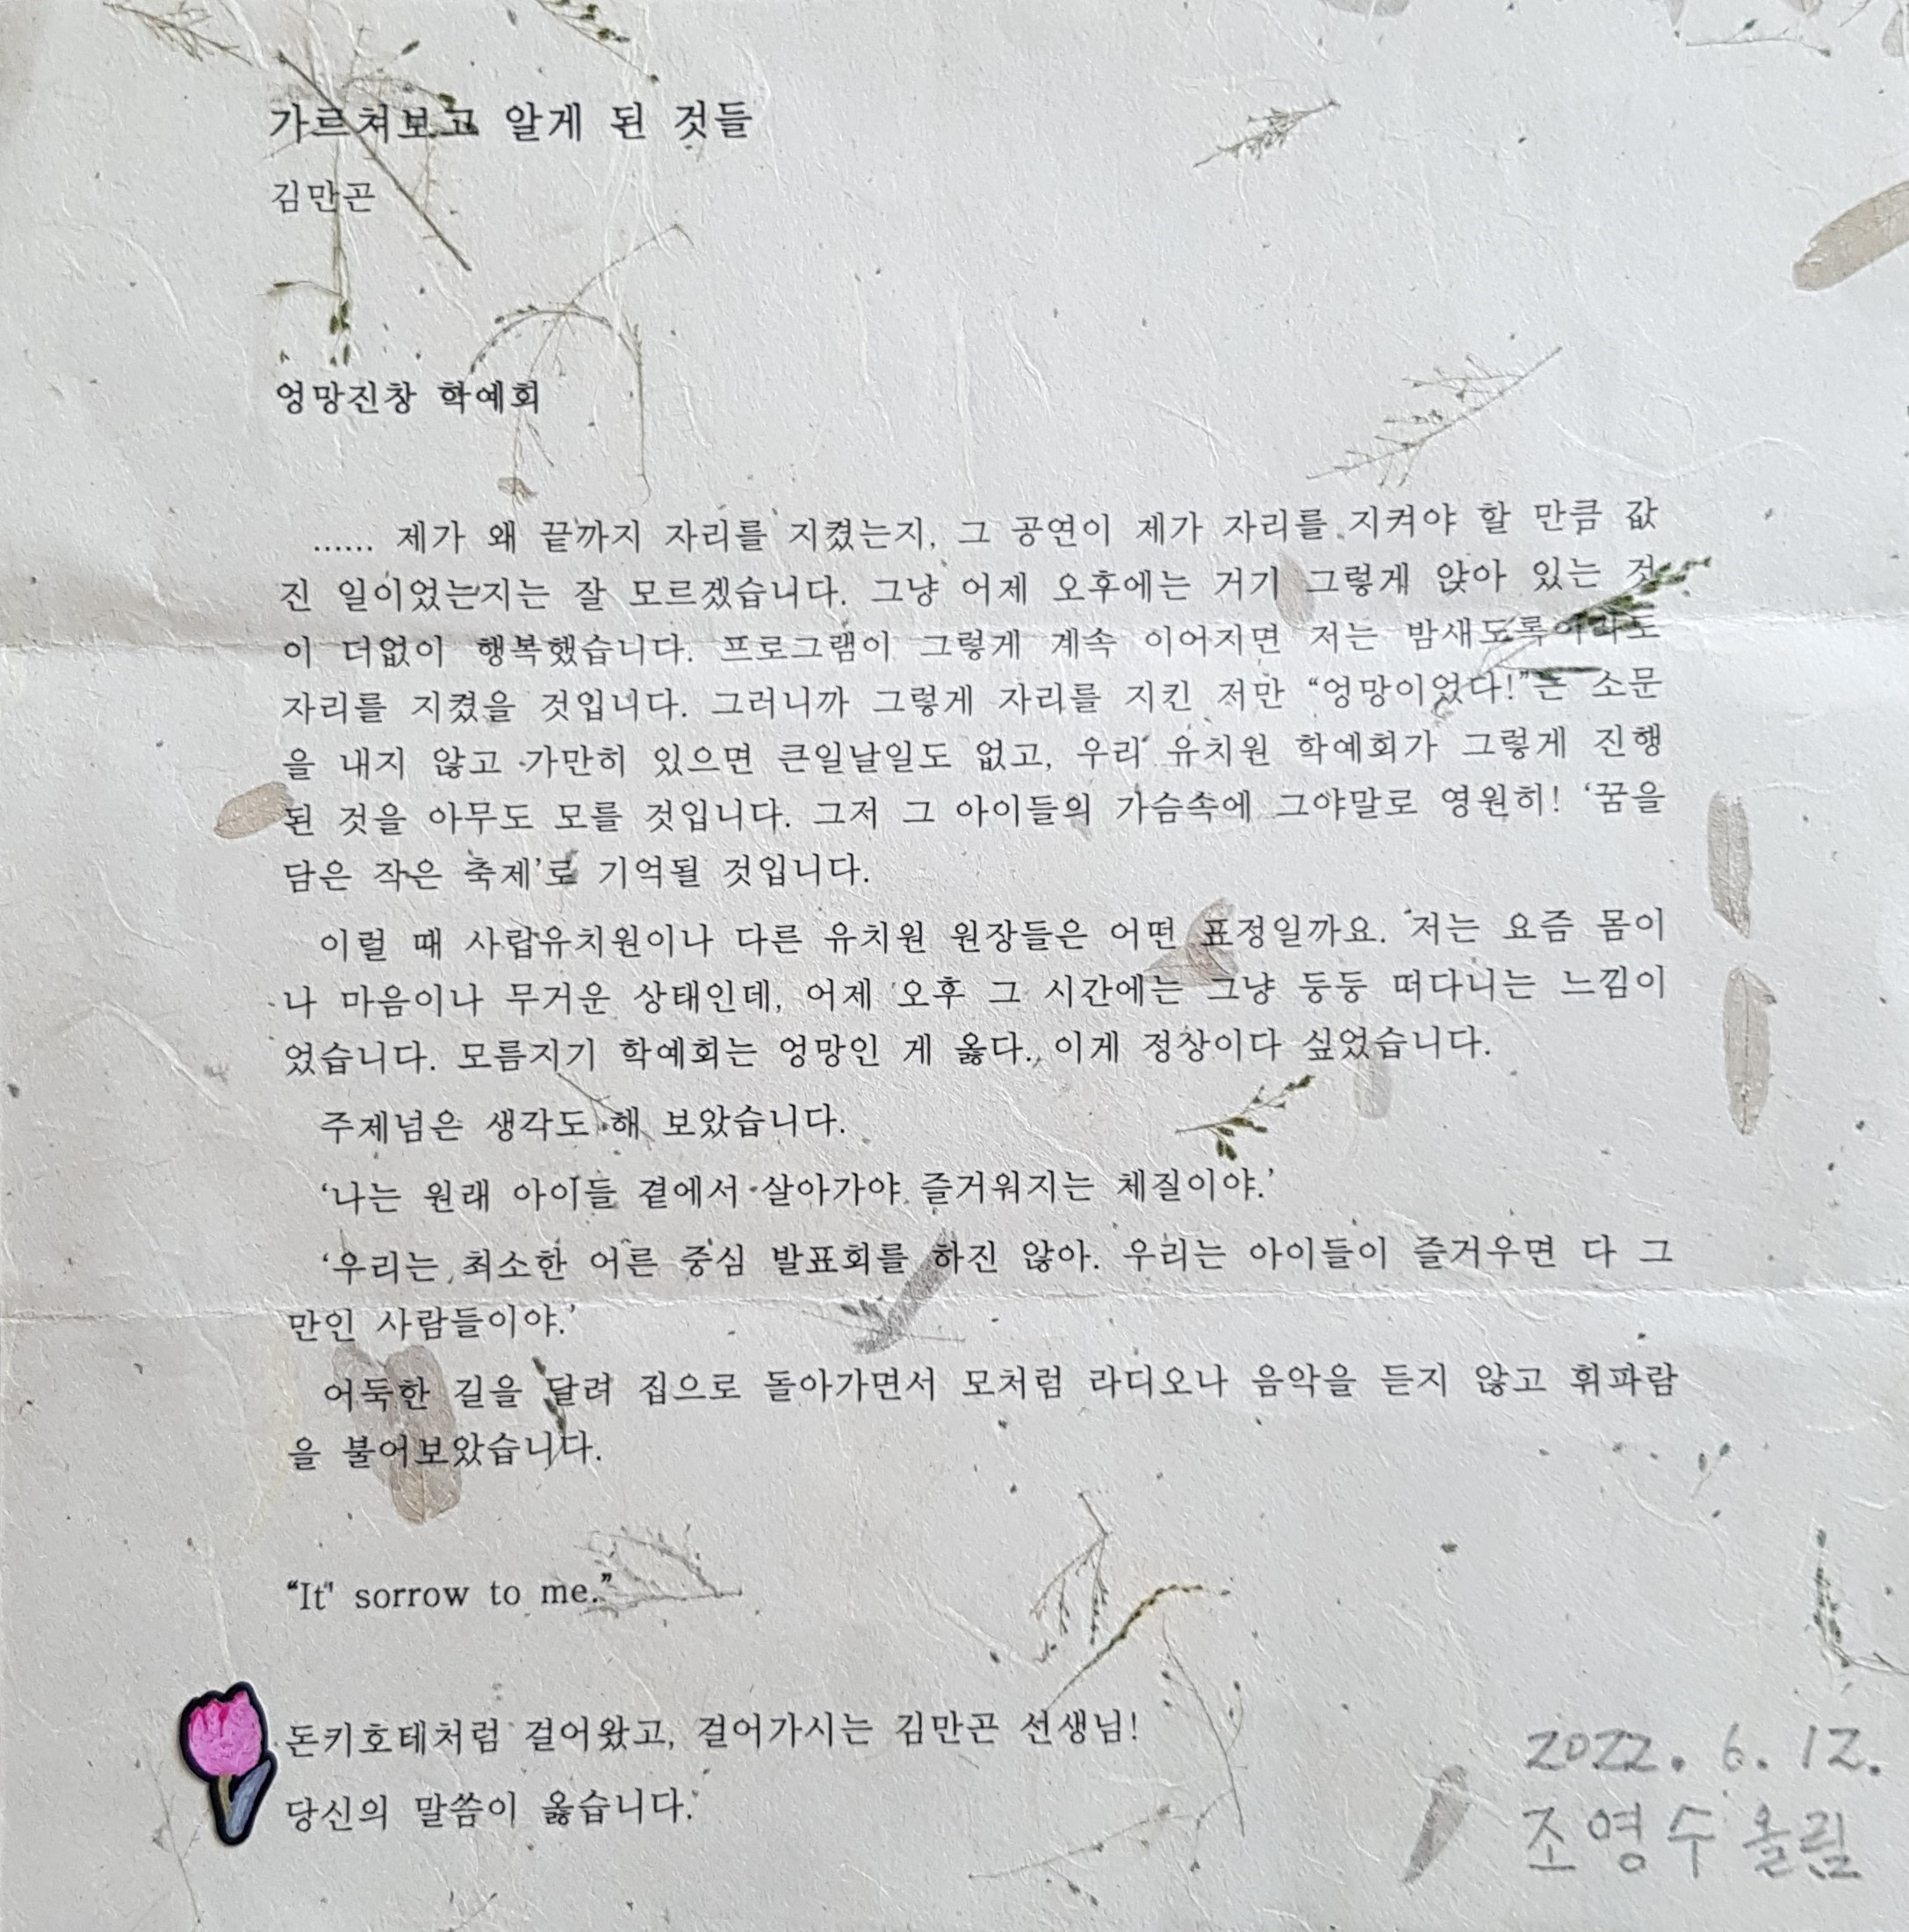 가르쳐보고 알게 된 것들
김만곤
엉망진창 학예회
...... 제가 왜 끝까지 자리를 지켰는지, 그 공연이 제가 자리를 지켜야 할 만큼 값
진 일이었는지는 잘 모르겠습니다. 그냥 어제 오후에는 거기 그렇게 앉아 있는 것
이 더없이 행복했습니다. 프로그램이 그렇게 계속 이어지면 저는 밤새도록이라도
자리를 지켰을 것입니다. 그러니까 그렇게 자리를 지킨 저만 “엉망이었다!”는 소문
을 내지 않고 가만히 있으면 큰일날일도 없고, 우리 유치원 학예회가 그렇게 진행
된 것을 아무도 모를 것입니다. 그저 그 아이들의 가슴속에 그야말로 영원히! ‘꿈을
담은 작은 축제’로 기억될 것입니다.
이럴 때 사립유치원이나 다른 유치원 원장들은 어떤 표정일까요. 저는 요즘 몸이
나 마음이나 무거운 상태인데, 어제 오후 그 시간에는 그냥 둥둥 떠다니는 느낌이
었습니다. 모름지기 학예회는 엉망인 게 옳다. 이게 정상이다 싶었습니다.
주제넘은 생각도 해 보았습니다.
‘나는 원래 아이들 곁에서 살아가야 즐거워지는 체질이야.’
‘우리는 최소한 어른 중심 발표회를 하진 않아. 우리는 아이들이 즐거우면 다 그
만인 사람들이야.’
어둑한 길을 달려 집으로 돌아가면서 모처럼 라디오나 음악을 듣지 않고 휘파람
을 불어보았습니다.
“It" sorrow to me.”
돈키호테처럼 걸어왔고, 걸어가시는 김만곤 선생님!
당신의 말씀이 옳습니다.
2022. 6. 12.
조영수 올림